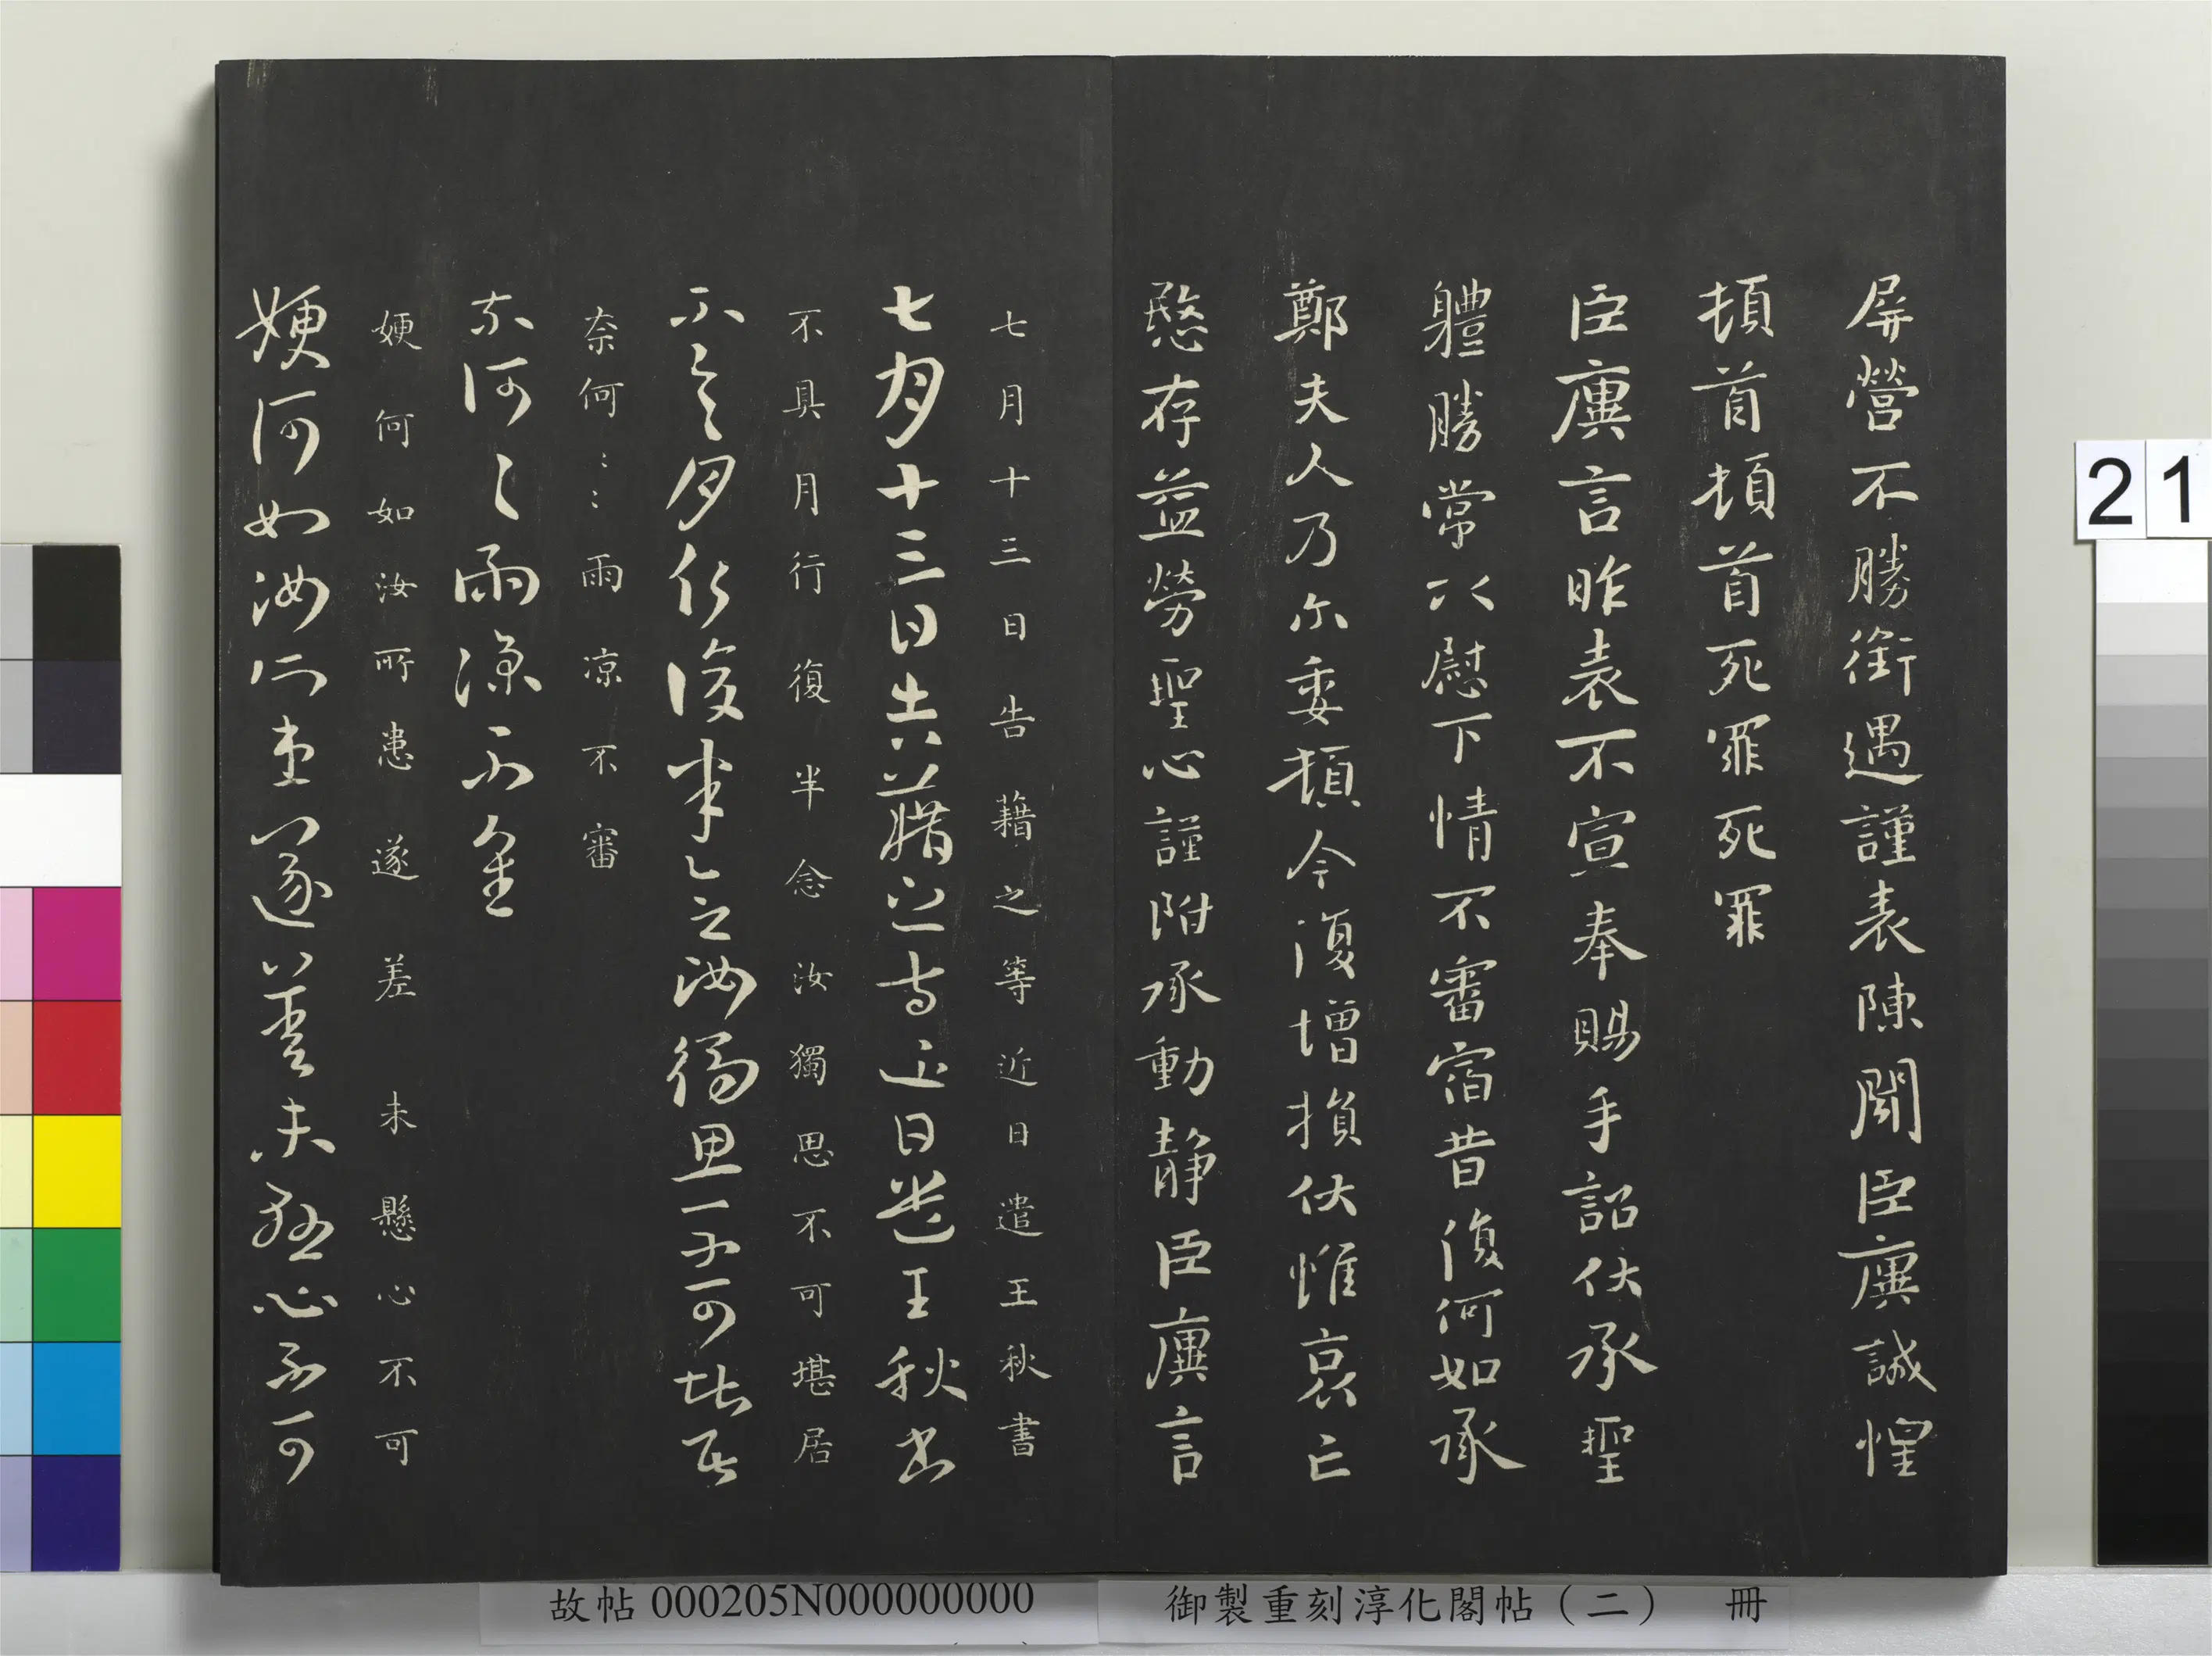 屏營不勝銜遇謹表陳聞臣廙誠惶
頓首頓首死罪死罪
臣廙言昨表不宣奉賜手詔伏承聖
軆勝常以慰下情不審宿昔復何如承
鄭夫人乃尒委頓今復增損伏惟哀亡
愍存益勞聖心謹附承動靜臣廙言
七月十三日告藉之等近日遣王秋書
七月十三日告藉之等近日遣王秋書
不具月行復半念汝獨思不可堪居
不具月行復半念汝獨思不可堪居
奈何：：雨凉不審
奈何〻雨凉不審
㛹何如汝所患遂差未懸心不可
㛹何如汝所患遂差未懸心不可
21
故帖 000205N000000000
御製重刻淳化閣帖（二） 冊